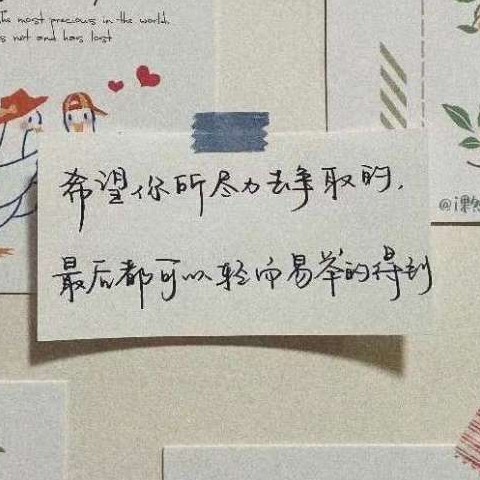 the most precious in the world.
s not and has lost
希望你所尽力去争取的,
最后都可以轻而易举的得到